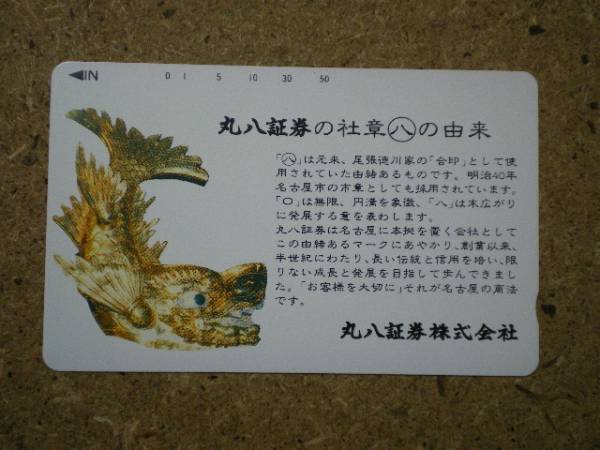 ◀IN 0 1 5 10 30 50
丸八証券の社章㊇の由来
「㊇」は元来、尾張徳川家の「合印」として使
用されていた由緒あるものです。明治40年
名古屋市の市章としても採用されています。
「〇」は無限、円満を象徴、「八」は末広がり
に発展する意を表わします。
丸八証券は名古屋に本拠を置く会社として
この由緒あるマークにあやかり、創業以来、
半世紀にわたり、長い伝統と信用を培い、限
りない成長と発展を目指して歩んできまし
た。「お客様を大切に」それが名古屋の商法
です。
丸八証券株式会社